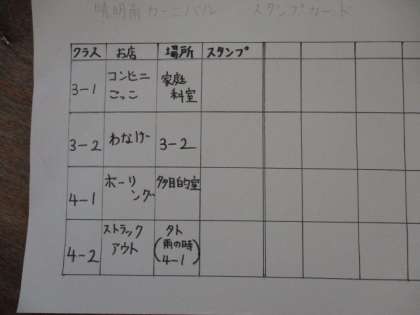 晴明南カーニバル スタンプカード
クラス お店 場所 スタンプ
3-1 コンビニ ごっこ 家庭 科室
3-2 わなげ 3-2
4-1 ボーリング 多目的室
4-2 ストラック アウト 外 (雨の時 4-1)